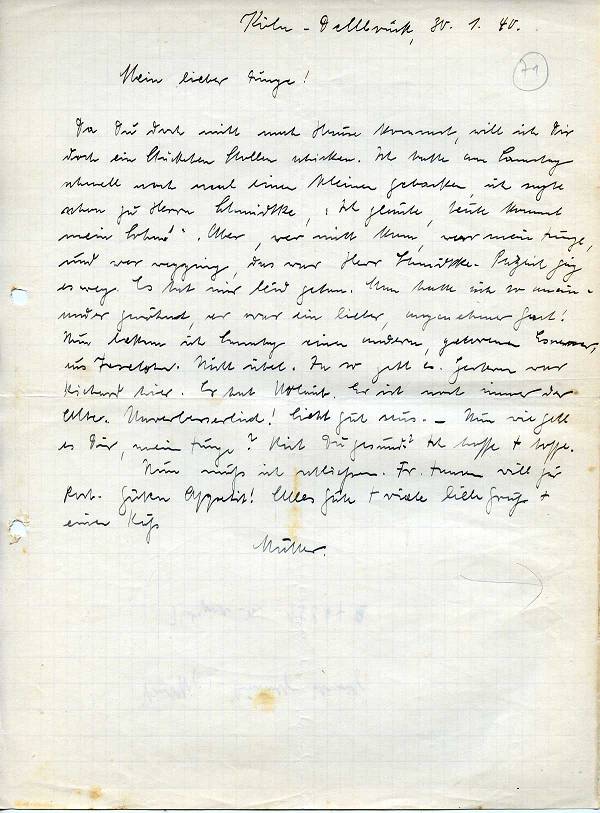 Köln - Dellbrück, 30. 1. 40.
71
Mein lieber Junge!
Da Du doch nicht nach Hause kommst, will ich Dir
doch ein Stückchen Stollen schicken. Ich hatte am Samstag
schnell noch mal einen kleinen gebacken, ich sagte
schon zu Herrn Schmidtke, "Ich glaube, heute kommt
mein Sohn". Aber, wer nicht kam, war mein Junge,
und wer wegging, das war Herr Schmidtke.
es weg. Es hat mir leid getan. Man hatte sich so anein-
ander gewöhnt, er war ein lieber, angenehmer Gast!
Nun bekam ich Samstag einen andern, geborener Essener,
aus Iserlohn. Nicht übel. Ja so geht es. Gestern war
Richard hier. Er hat Urlaub. Er ist noch immer der
Alte. Unverbesserlich! Sieht gut aus. - Nun wie geht
es Dir, mein Junge? Bist Du gesund? Ich hoffe + hoffe.
Nun muß ich schließen. Fr. will zur
Post. Guten Appetit! Alles Gute + viele liebe Grüße +
einen Kuß
Mutter.